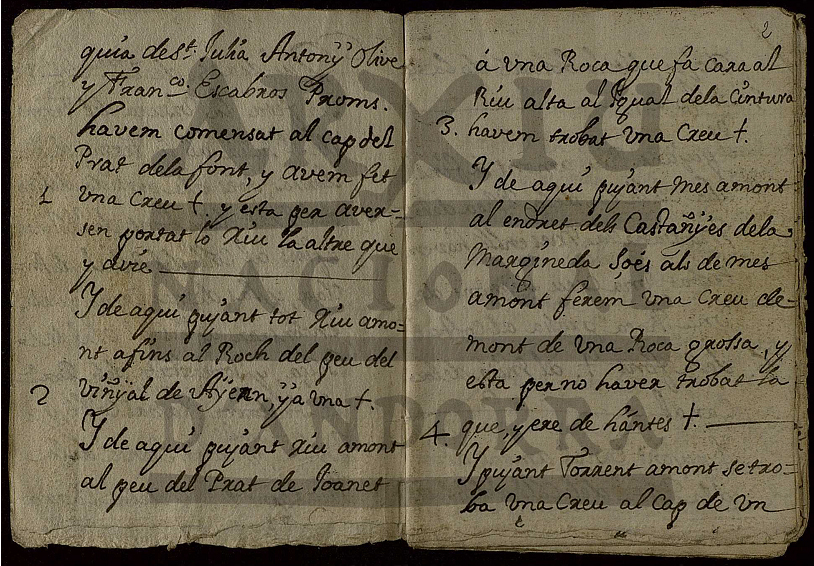 quia de St. Julià Antony Olive
y Franco. Escabros Proms.
havem comensat al cap del
Prat dela font, y avem fet
1 vna Creu †. y esta per aver=
sen portat lo Riu la altre que
y avie
Y de aqui pujant tot Riu amo=
nt afins al Roch del peu del
2 vinyal de Ayenn, yà vna †.
Y de aqui pujant riu amont
al peu del Prat de Joanet
2
á vna Roca que fa cara al
Riu alta al Igual dela Cintura
3. havem trobat vna Creu †.
Y de aqui pujant mes amont
al endret dels Castañyes dela
Margineda Soés als de mes
amont ferem vna Creu de=
mont de vna Roca grossa, y
esta per no haver trobat la
4. que, y ere de hántes †.
Y pujant Torrent amont se tro=
ba vna Creu al Cap de vn
ARXIU
NACIONAL
D'ANDORRA